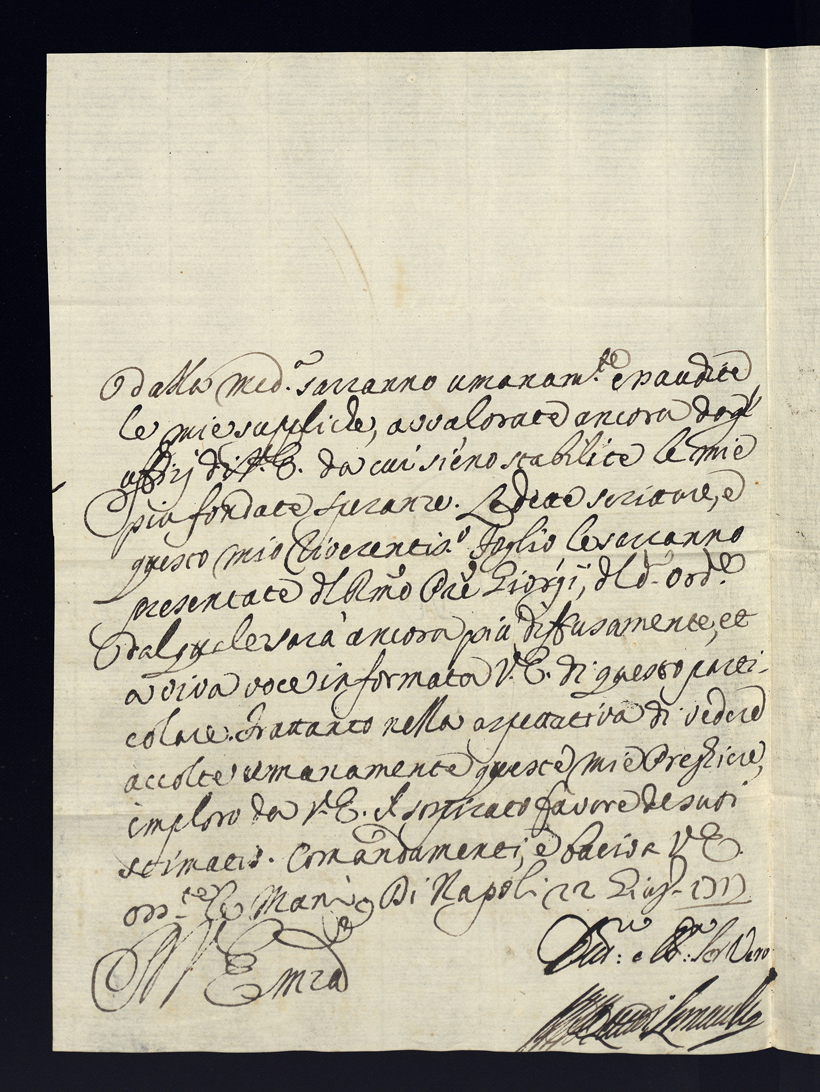 dalla Med.a saranno umanam.te esaudite
le mie suppliche, avvalorate ancora dagl'
uffizij di V.E. da cui sieno stabilite le mie
più fondate speranze. Le dette scritture, e
questo mio riverentis.o foglio le saranno
presentate dl Rmo Pre Giorgi, dl d.o ord.e
dal quale sarà ancora più diffusamente, et
a viva voce informata V.E. di questo parti-
colare. Frattanto nella aspettativa di vedere
accolte umanamente queste mie Preghiere,
imploro da V.E. il sospirato favore de suoi
stimatis. Comandamenti, e bacio a V.E.
oss.te le Mani. Di Napoli 22 Giug.
Di V Emza
e Ser Vero